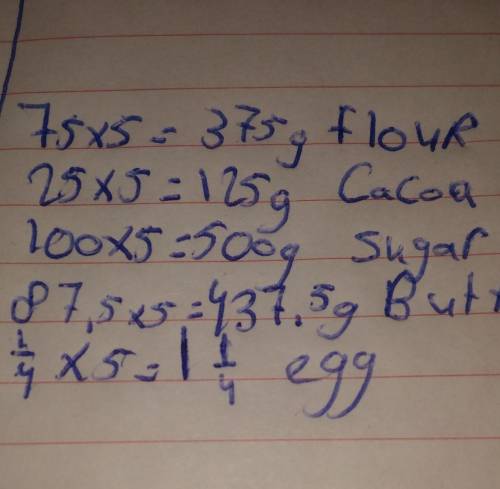 75x5 = 375g flour
25x5 = 125g Cacoa
100x5 = 500g Sugar
87,5x5 = 437.5g Butt
1/4 x 5 = 1 1/4 egg